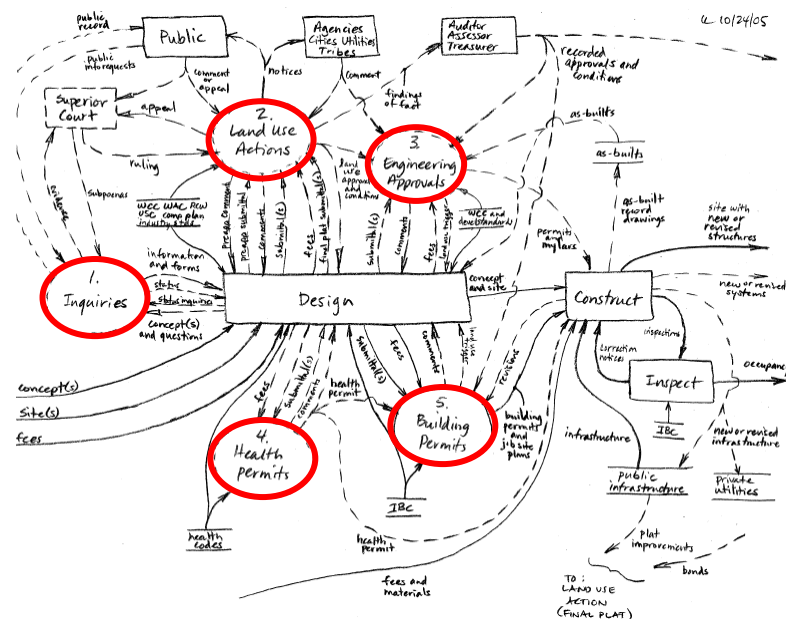 LL 10/24/05
public
record
Public
Agencies
Cities Utilities
Tribes
Auditor
Assessor
Treasurer
recorded
approvals and
conditions
public
info requests
comment
or
appeal
notices
comment
findings
of fact
Superior
Court
appeal
2.
Land Use
Actions
3.
Engineering
Approvals
as-builts
as-builts
ruling
evidence
subpoenas
land
use
approval
and
conditions
WCC WAC RCW
USC comp plan
industry stds
pre-app comment
pre-app submittal
comments
submittal(s)
fees
final plat submittal(s)
submittal(s)
comments
fees
land use trigger
WCC and
devel standards
permits
and
mylars
as-built
record
drawings
site with
new or
revised
structures
1.
Inquiries
information
and forms
status
status inquiries
concept(s)
and questions
Design
concept
and site
Construct
new or revised
systems
inspections
correction
notices
Inspect
occupancy
IBC
concept(s)
Site(s)
fees
fees
submittal(s)
comments
health
permit
submittal(s)
fees
comments
land use
trigger
revisions
4.
Health
Permits
5.
Building
Permits
building
permits
and
job site
plans
infrastructure
new or revised
infrastructure
public
infrastructure
private
utilities
health
codes
IBC
health
permit
fees and
materials
plat
improvements
bonds
TO:
LAND USE
ACTION
(FINAL PLAT)